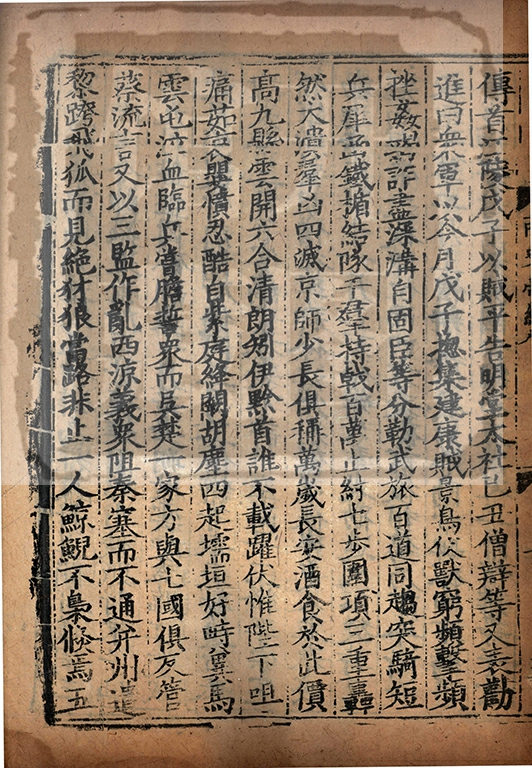 傳首江陵戊子以賊平告明堂太社己丑僧辯等又表勸
進曰衆軍以今月戊子揔集建康賊景鳥伏獸窮頻擊頻
挫姦竭詐盡深溝自固臣等分勒武旅百道同趨突騎短
兵犀函鐵楯結隊千羣持戟百萬止紂七步圍項三重轟
然大潰羣凶四滅京師少長俱稱萬歲長安酒食於此價
高九縣雲開六合清朗矧伊黔首誰不載躍伏惟陛下咀
痛茹哀嬰憤忍酷自紫庭絳闕胡塵四起壖垣好時冀馬
雲屯泣血臨兵嘗膽誓衆而吳楚一家方與七國俱反管
蔡流言又以三監作亂西涼義衆阻秦塞而不通并州遺
黎跨飛狐而見絶犲狼當路非止一人鯨鯢不梟倐焉五